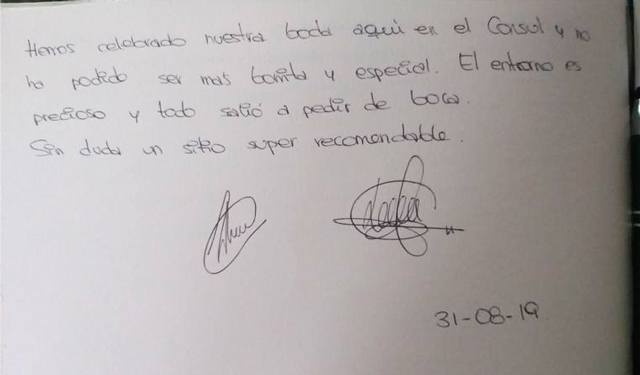 Hemos celebrado nuestra boda aquí en el Consul y no
ha podido ser mas bonita y especial. El entorno es
precioso y todo salió a pedir de boca.
Sin duda un sitio super recomendable.
31-08-19